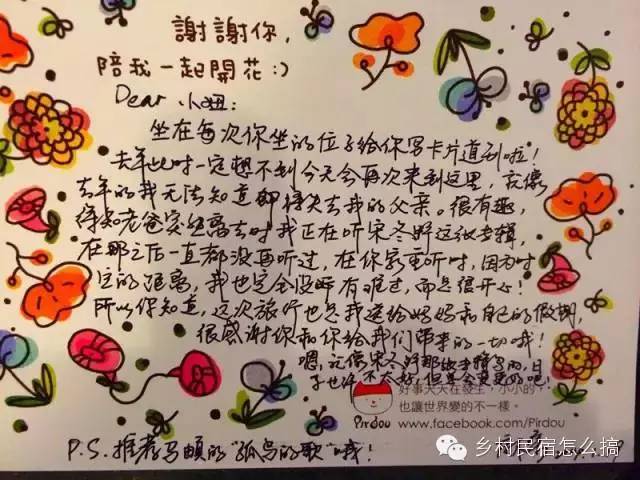 謝謝你，
陪我一起開花:)
Dear 小妞：
坐在每次你坐的位子给你写卡片道别啦！
去年此时一定想不到今天会再次来到这里，就像
去年的我无法知道即将失去我的父亲。很有趣，
得知老爸突然离去时我正在听宋冬野这张专辑，
在那之后一直都没再听过，在你家重听时，因为时
空的距离，我也完全没有难过，而是很开心！
所以你知道，这次旅行也是我送给妈妈和自己的假期，
很感谢你和你给我们带来的一切哦！
嗯，就像宋冬野那张专辑写的，日
子也许不太好，但是会更好的吧！
好事天天在發生，小小的，
也讓世界變的不一樣。
Pirdou
www.facebook.com/Pirdou
P.S. 推荐马頔的“孤鸟的歌”哦！
乡村民宿怎么搞